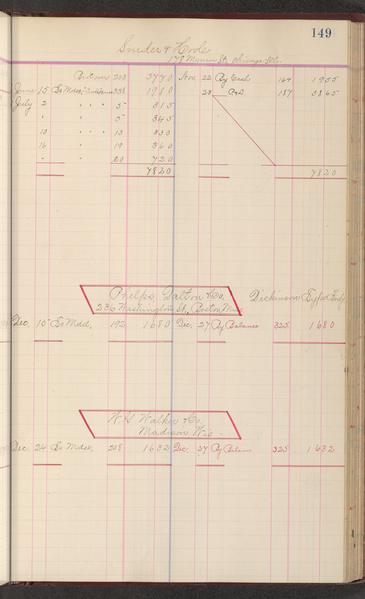 149
Snider & Hoole
178 Monroe St, Chicago Ills.
203 3770 Nov. 22 By Cash 164 1955
June 15 To Mdse, 338 1980 28 187 5865
July 2 " " " 5 315
" 5 345
10 " " 13 330
16 19 360
" 20 720
7820 7820
Phelps, Dalton & Co. Dickinson Type Fndy
236 Washington St, Boston Mass
Dec. 15 To Mdse, 192 1680 Dec. 27 By Balance 325 1680
W. G. Walker & Co.
Madison Wis
Dec. 24 To Mdse, 208 1632 Dec. 27 By Balance 325 1632